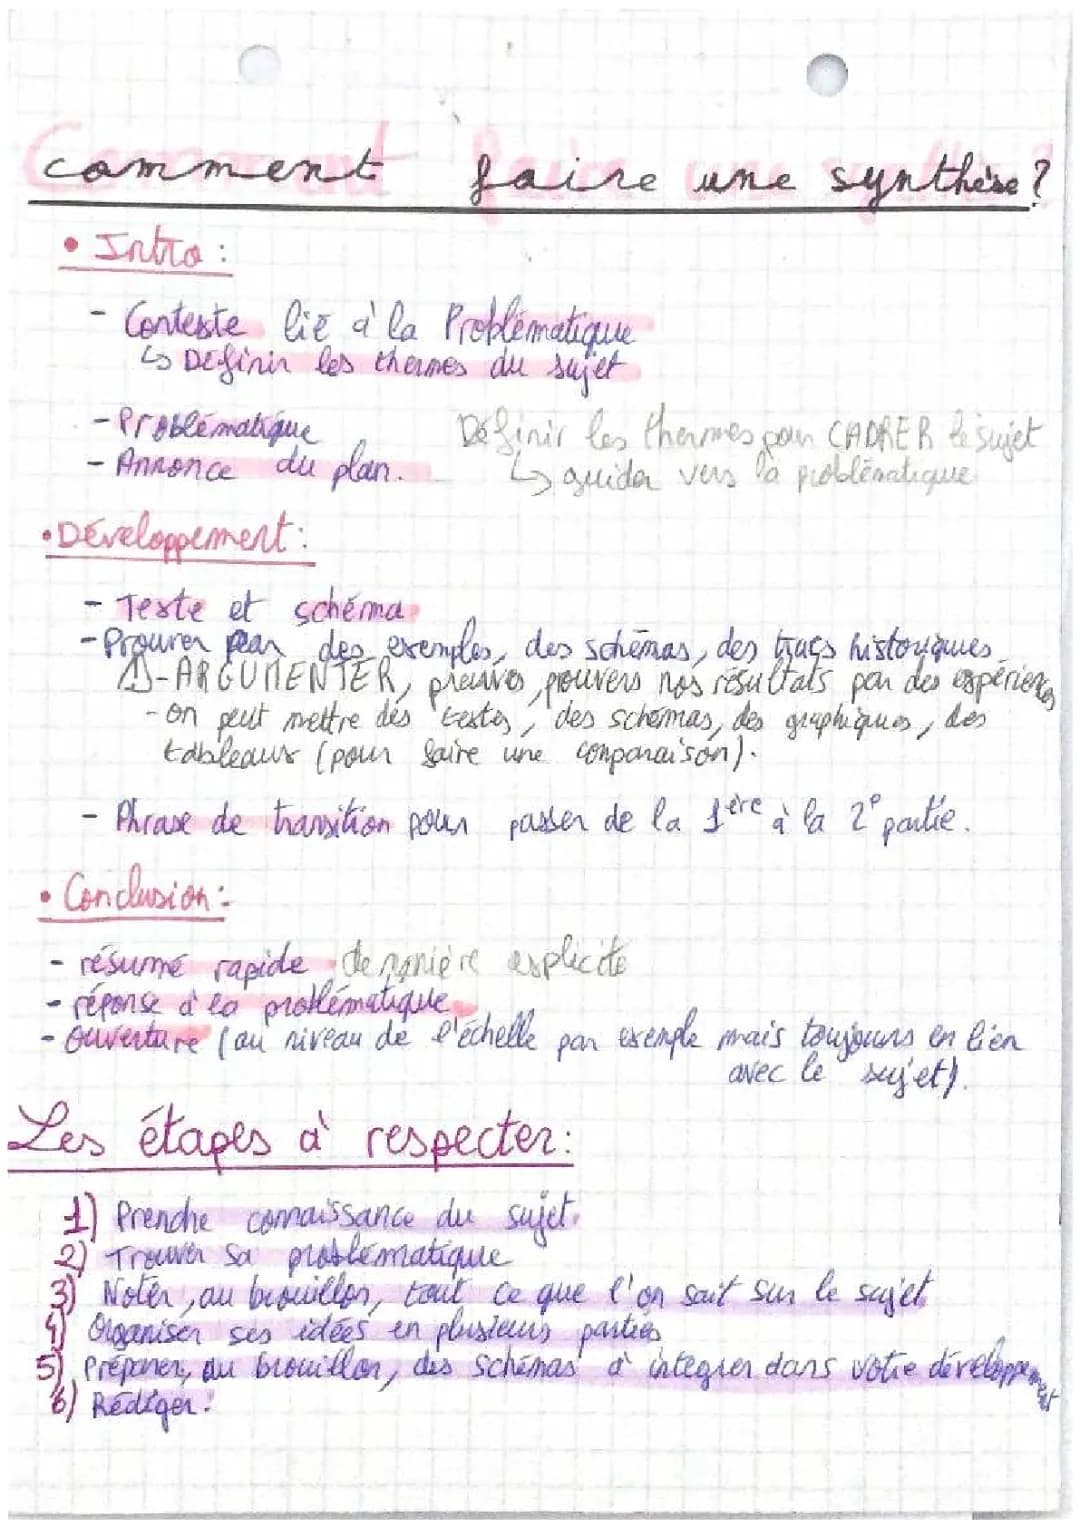 comment faire une synthèse ?
• Intro :
- Contexte lié à la Problématique
↳ Définir les thermes du sujet
- Problématique
Définir les thermes pour CADRER le sujet
- Annonce du plan.
↳ guider vers la problématique
• Développement :
- Texte et schéma
- Prouver par des exemples, des schémas, des trucs historiques
⚠ - ARGUMENTER, preuves, prouvers nos résultats par des expériences
- on peut mettre des textes, des schémas, des graphiques, des
tableaux (pour faire une comparaison).
- Phrase de transition pour passer de la 1ère à la 2e partie.
• Conclusion :
- résumé rapide de manière explicite
- réponse à la problématique
- Ouverture (au niveau de l'échelle par exemple mais toujours en lien
avec le sujet).
Les étapes à respecter :
1) Prendre connaissance du sujet.
2) Trouver sa problématique
3) Noter, au brouillon, tout ce que l'on sait sur le sujet
4) Organiser ses idées en plusieurs parties
5) Préparer, au brouillon, des schémas à intégrer dans votre développement
6) Rédiger.